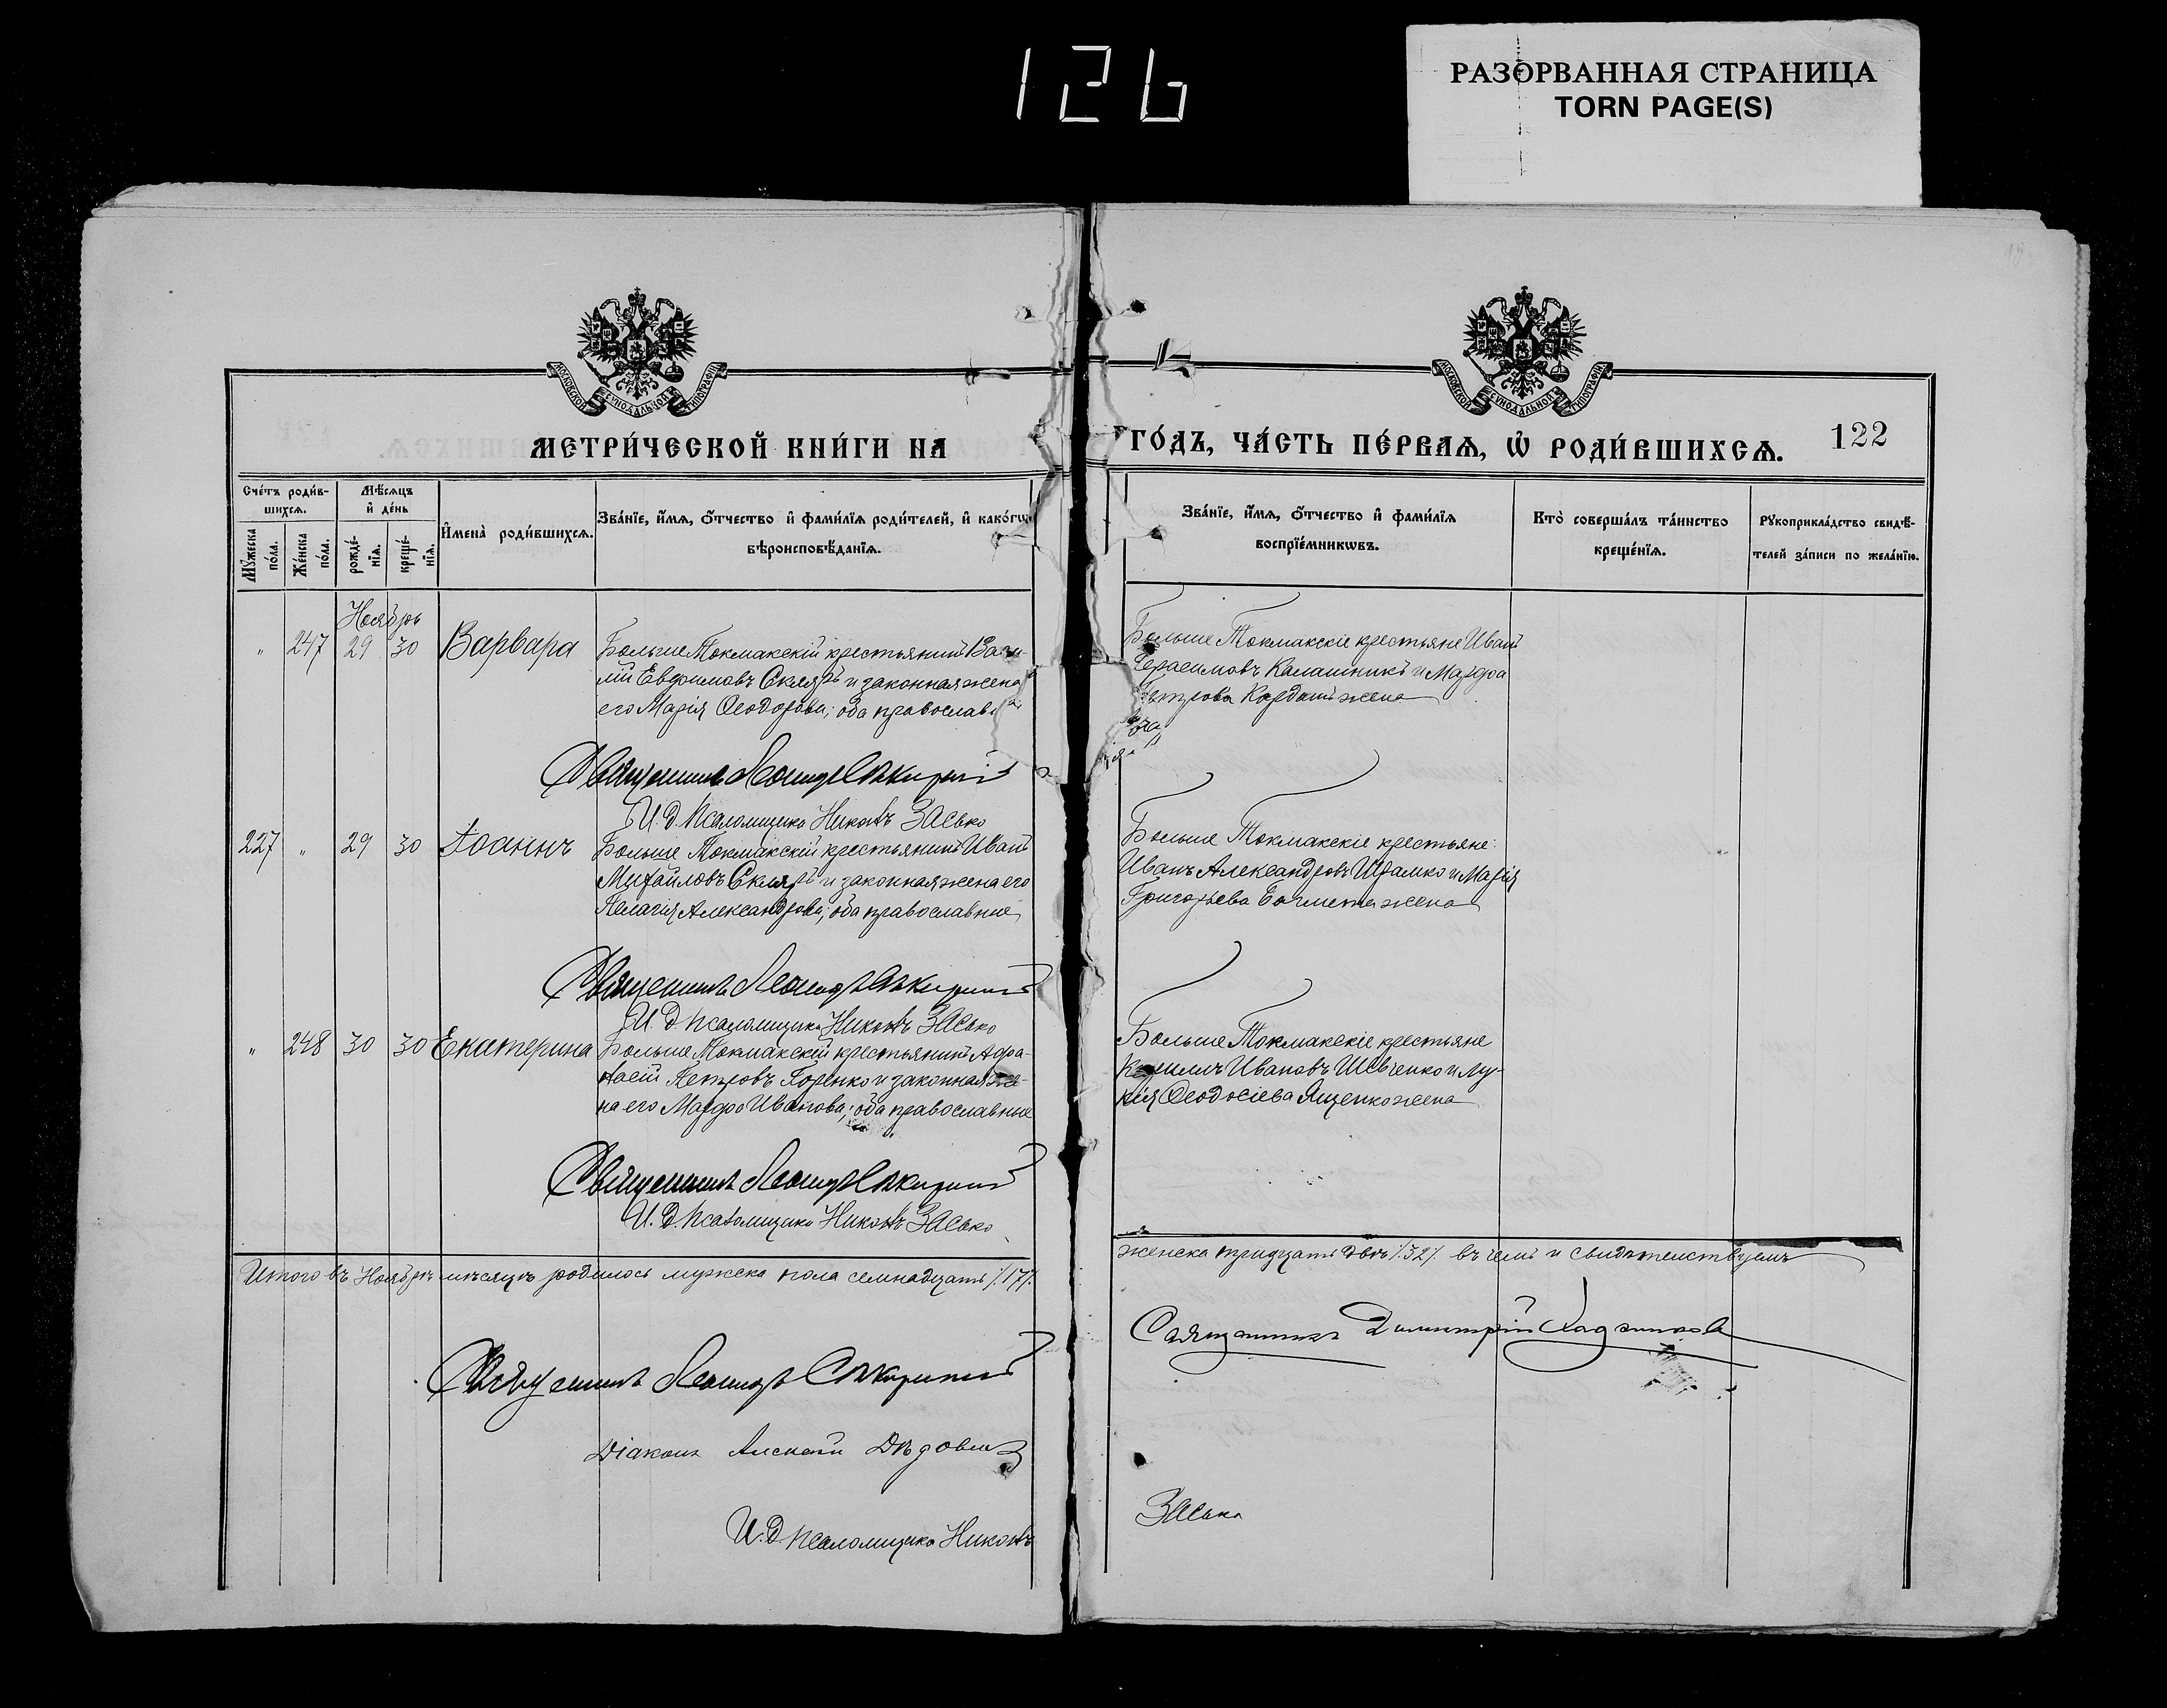 126
РАЗОРВАННАЯ СТРАНИЦА
TORN PAGE(S)
МОСКОВСКОЙ СѴНОДАЛЬНОЙ ТИПОГРАФІИ
МОСКОВСКОЙ СѴНОДАЛЬНОЙ ТИПОГРАФІИ
МЕТРИ́ЧЕСКОЙ КНИ́ГИ НА
ГО́ДЪ, ЧА́СТЬ ПЕ́РВАѦ, Ѿ РОДИ́ВШИХСѦ.
122
Сче́тъ роди́в-
шихсѧ.
Мѣ́сѧцъ
и҆ де́нь
Мꙋ́жеска
по́ла.
Же́нска
по́ла.
рожде́-
нїѧ.
креще́-
нїѧ.
И҆мена̀ роди́вшихсѧ.
Зва́нїе, и҆́мѧ, ѻ҆́тчество и҆ фами́лїѧ роди́телей, и҆ како́гѡ
вѣроисповѣ́данїѧ.
Зва́нїе, и҆́мѧ, ѻ҆́тчество и҆ фами́лїѧ
воспрїе́мникѡвъ.
Кто̀ соверша́лъ та́инство
креще́нїѧ.
Рꙋкоприкла́дство свидѣ́-
телей за́писи по жела́нїю.
Ноябрь
" 247 29 30 Варвара
Больше Токмакскій крестьянинъ Васи-
лій Евфимовъ Скляръ и законная жена
его Марія Ѳеодорова; оба православ
Больше Токмакскіе крестьяне Иванъ
Герасимовъ Калашникъ и Марфа
Петрова жена
Священникъ Леонидъ
И. Д. Псаломщика Никонъ Засько
227 " 29 30 Іоаннъ
Больше Токмакскій крестьянинъ Иванъ
Михайловъ Скляръ и законная жена его
Пелагія Александрова; оба православные
Больше Токмакскіе крестьяне:
Иванъ Александровъ и Марія
Григорьева жена
Священникъ Леонидъ
И. Д. Псаломщика Никонъ Засько
" 248 30 30 Екатерина
Больше Токмакскій крестьянинъ Афа-
насій Петровъ Горенко и законная же-
на его Марфа Иванова; оба православные
Больше Токмакскіе крестьяне
Кириллъ Ивановъ Шевченко и Лу-
кія Ѳеодосіева Яценко жена
Священникъ Леонидъ
И. Д. Псаломщика Никонъ Засько
Итого въ Ноябрѣ мѣсяцѣ родилось мужска пола семнадцать /.17/.
женска тридцать двѣ /.32/. въ чемъ и свидѣтельствуемъ
Священникъ Леонидъ
Священникъ Димитрій
Діаконъ Алексѣй
И. Д. Псаломщика Никонъ
Засько